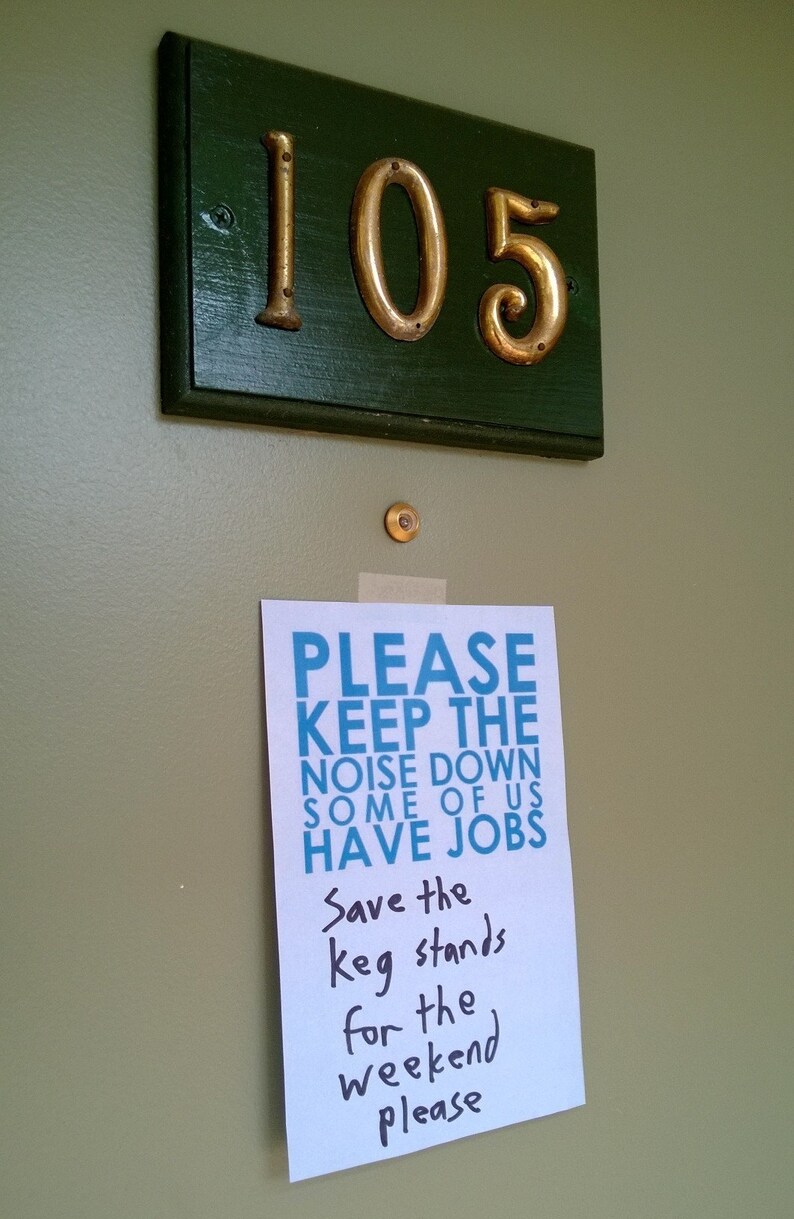 105
PLEASE
KEEP THE
NOISE DOWN
SOME OF US
HAVE JOBS
Save the
keg stands
for the
weekend
please